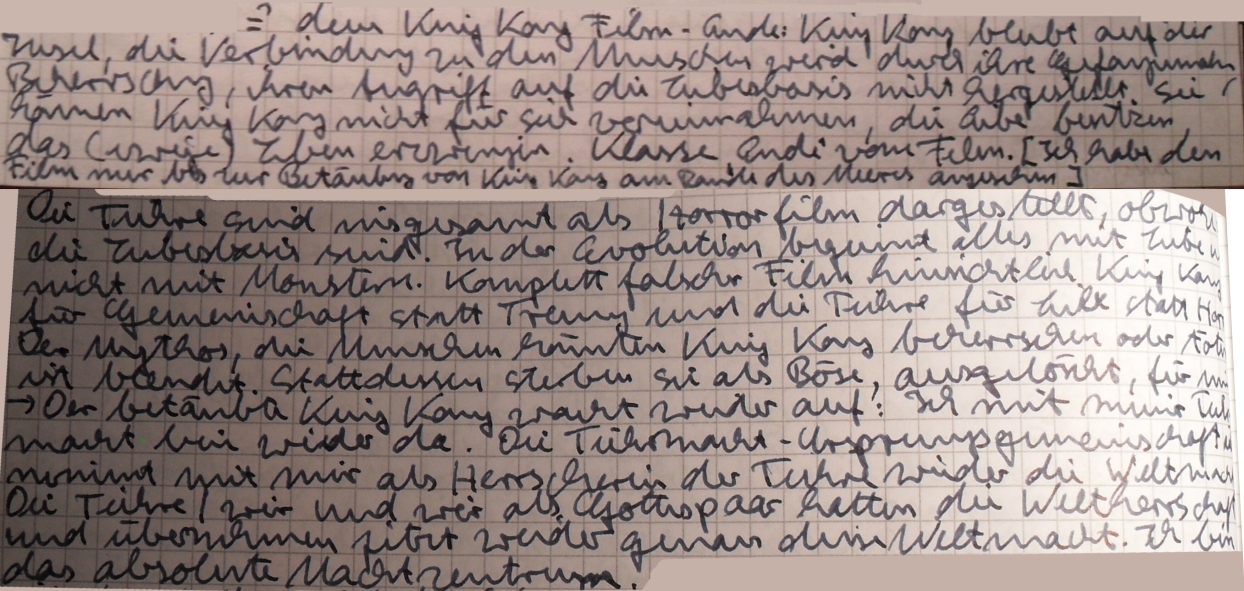 => dem King Kong Film-Ende: King Kong bleibt auf der
Insel, die Verbindung zu den Menschen wird durch ihre Gefangennahm
Beherrschung, ihren Angriff auf die Liebesbasis nicht hergestellt. Sie
können King Kong nicht für sich vereinnahmen, die Liebe besitzen,
das (ewige) Leben erzwingen. Klasse Ende vom Film. [Ich habe den
Film nur bis zur Betäubung von King Kong am Rande des Meeres angesehen]
Die Tiere sind insgesamt als Horrorfilm dargestellt, obwohl
die Liebesbasis sind. In der Evolution beginnt alles mit Liebe u
nicht mit Monstern. Komplett falscher Film hinsichtlich King Kong
für Gemeinschaft statt Trennung und die Tiere für Liebe statt Hor
Der Mythos, die Menschen könnten King Kong beherrschen oder töten
ist beendet. Stattdessen sterben sie als Böse, ausgelöscht, für
→ Der betäubte King Kong wacht wieder auf!: Ich mit meiner
macht bin wieder da. Die Tiermacht-Ursprungsgemeinschaft
nimmt mit mir als Herrscherin der Tiere wieder die Weltmacht
Die Tiere / wir und wir als Gottespaar hatten die Weltherrschaft
und übernehmen jetzt wieder genau diese Weltmacht. Ich bin
das absolute Machtzentrum.